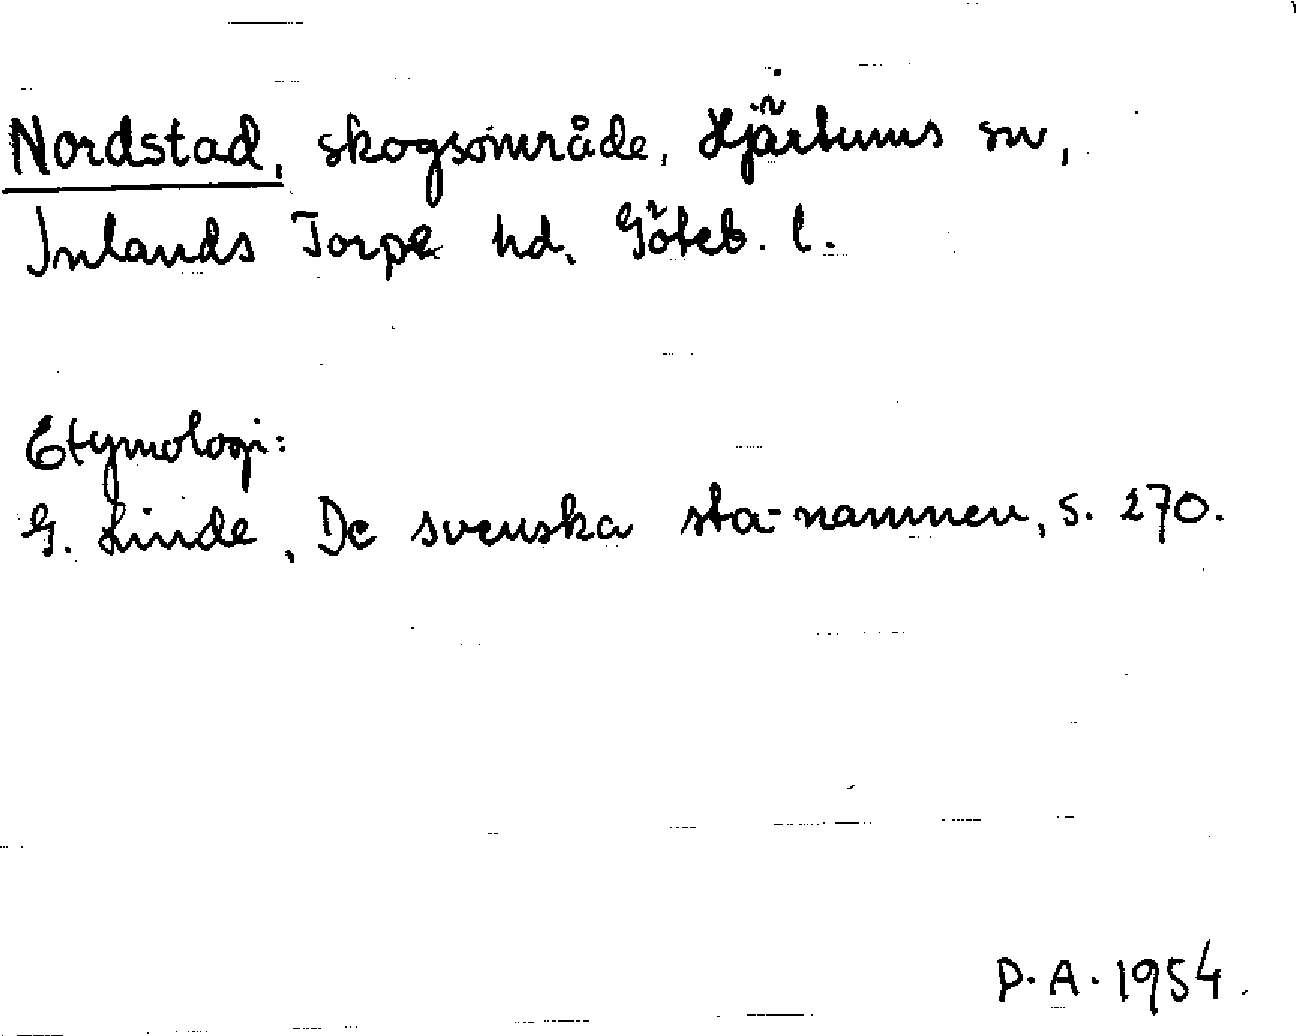 Nordstad, skogsområde, Hjärtums sn,
Inlands Torpe hd, Göteb. l.
Etymologi:
G. Linde, De svenska sta-namnen, s. 270.
P.A. 1954.